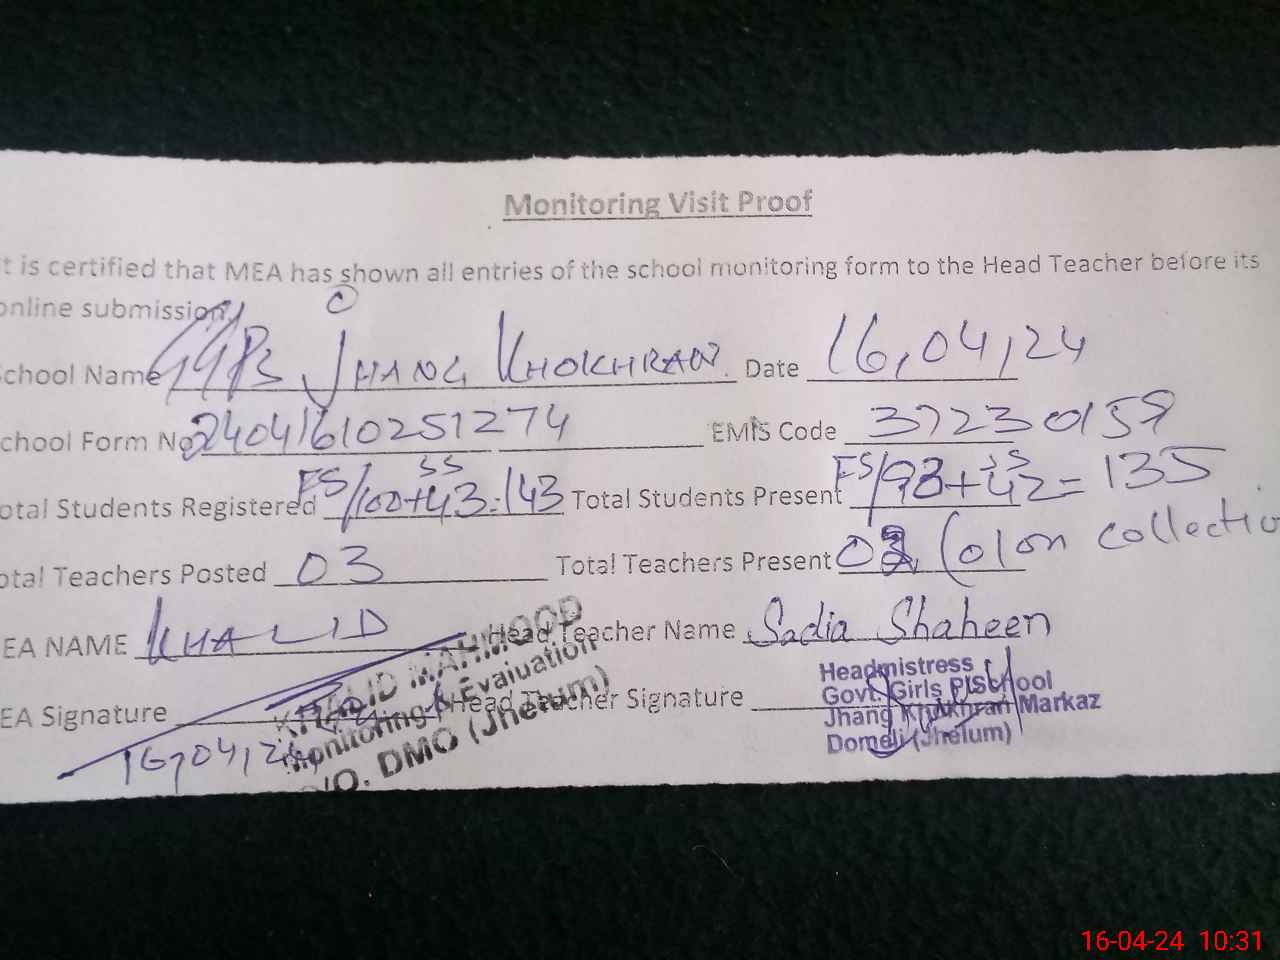 Monitoring Visit Proof
t is certified that MEA has shown all entries of the school monitoring form to the Head Teacher before its
online submission
chool Name GGPS Jhang Khokhran. Date 16,04,24
chool Form No 24041610251274 EMIS Code 37230159
otal Students Registered FS/100+43=143 SS Total Students Present FS/93+42=135 SS
otal Teachers Posted 03 Total Teachers Present 02 (01 on collectio
EA NAME KHALID Head Teacher Name Sadia Shaheen
EA Signature Head Teacher Signature
16,04,24
KHALID MAHMOOD
Monitoring & Evaluation
O/O. DMO (Jhelum)
Headmistress
Govt. Girls P/School
Jhang Khokhran Markaz
Domeli (Jhelum)
16-04-24 10:31